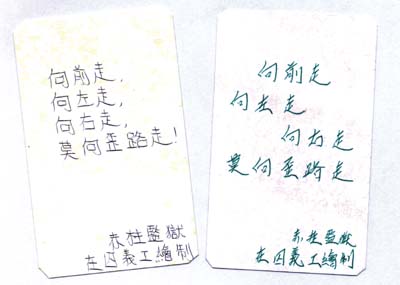 向前走,
向左走,
向右走,
莫向歪路走!
赤柱監獄
在囚義工繪制
向前走
向左走
向右走
莫向歪路走
赤柱監獄
在囚義工繪制